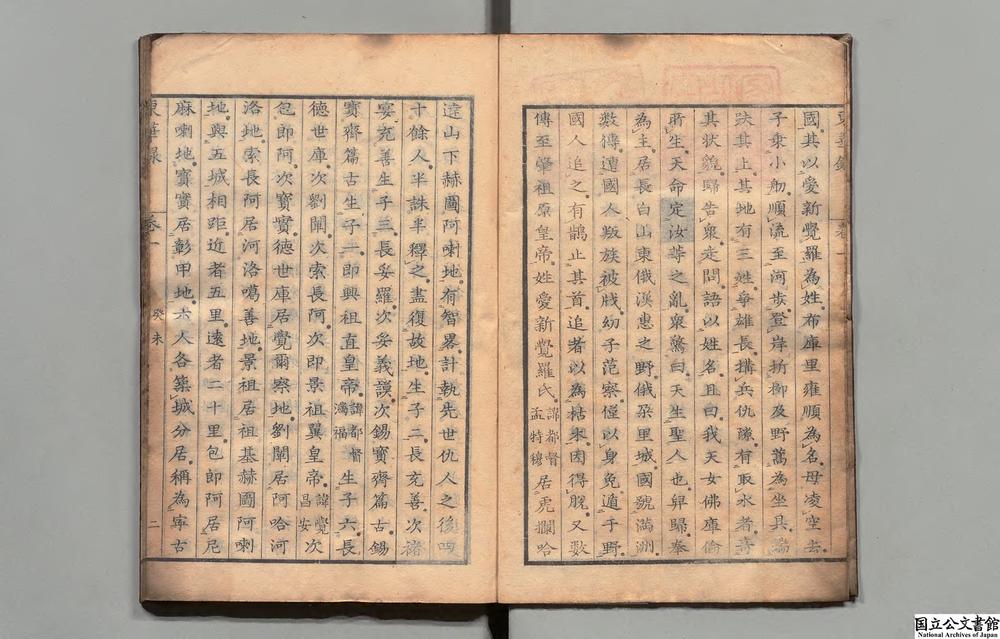 國其以愛新覺羅為姓布庫里雍順為名母凌空去
子乘小舠順流至河步登岸折柳及野蒿為坐具端
趺其上其地有三姓爭雄長搆兵仇隙有取水者奇
其狀貌歸告衆走問語以姓名且曰我天女佛庫倫
所生天命定汝等之亂衆驚曰天生聖人也舁歸奉
為主居長白山東俄漠惠之野俄朶里城國號滿洲
數傳遭國人叛族被戕幼子范察僅以身免遁于野
國人追之有鵲止其首追者以為枯木因得脫又數
傳至肇祖原皇帝姓愛新覺羅氏諱都督孟特穆居虎攔哈
達山下赫圖阿喇地有智畧計執先世仇人之後四
十餘人半誅半釋之盡復故地生子二長充善次禇
宴充善生子三長妥羅次妥義謨次錫寶齊篇古錫
寶齊篇古生子一即興祖直皇帝諱都督福滿生子六長
德世庫次劉闡次索長阿次即景祖翼皇帝諱覺昌安次
包郎阿次寶實德世庫居覺爾察地劉闡居阿哈河
洛地索長阿居河洛噶善地景祖居祖基赫圖阿喇
地與五城相距近者五里遠者二十里包郎阿居尼
麻喇地寶實居彰甲地六人各築城分居稱為寧古
東華錄 卷一 癸未 二